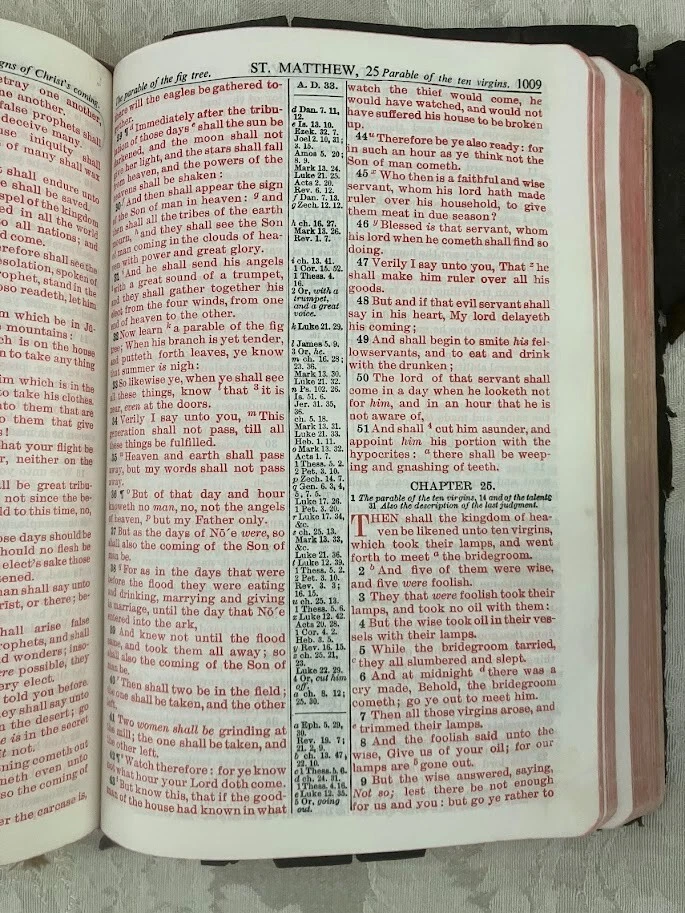 gns of Christ's coming.
etray one another,
ne another.
false prophets shall
deceive many.
use iniquity shall
of many shall wax
shall endure unto
e shall be saved.
spel of the kingdom
ed in all the world
o all nations; and
d come.
erefore shall see the
solation, spoken of
ophet, stand in the
oso readeth, let him
m which be in Ju-
mountains:
ch is on the house
n to take any thing
im which is in the
to take his clothes.
nto them that are
o them that give
s!
hat your flight be
r, neither on the
ll be great tribu-
not since the be-
ld to this time, no,
ose days should be
hould no flesh be
elect's sake those
tened.
man shall say unto
rist, or there; be-
hall arise false
rophets, and shall
d wonders; inso-
ere possible, they
ery elect.
told you before.
ey shall say unto
n the desert; go
e is in the secret
it not.
ning cometh out
neth even unto
so the coming of
er the carcase is,
The parable of the fig tree.
ST. MATTHEW, 25
Parable of the ten virgins. 1009
ere will the eagles be gathered to-
ther.
29 ¶ d Immediately after the tribu-
lation of those days e shall the sun be
darkened, and the moon shall not
give her light, and the stars shall fall
from heaven, and the powers of the
heavens shall be shaken:
30 f And then shall appear the sign
of the Son of man in heaven: g and
then shall all the tribes of the earth
mourn, h and they shall see the Son
of man coming in the clouds of hea-
ven with power and great glory.
31 i And he shall send his angels
with a great sound of a trumpet,
and they shall gather together his
elect from the four winds, from one
end of heaven to the other.
32 Now learn k a parable of the fig
tree; When his branch is yet tender,
and putteth forth leaves, ye know
that summer is nigh:
33 So likewise ye, when ye shall see
all these things, know l that 3 it is
near, even at the doors.
34 Verily I say unto you, m This
generation shall not pass, till all
these things be fulfilled.
35 n Heaven and earth shall pass
away, but my words shall not pass
away.
36 ¶ o But of that day and hour
knoweth no man, no, not the angels
of heaven, p but my Father only.
37 But as the days of Nō´e were, so
shall also the coming of the Son of
man be.
38 q For as in the days that were
before the flood they were eating
and drinking, marrying and giving
in marriage, until the day that Nō´e
entered into the ark,
39 And knew not until the flood
came, and took them all away; so
shall also the coming of the Son of
man be.
40 r Then shall two be in the field;
the one shall be taken, and the other
left.
41 Two women shall be grinding at
the mill; the one shall be taken, and
the other left.
42 ¶ Watch therefore: for ye know
not what hour your Lord doth come.
43 But know this, that if the good-
man of the house had known in what
A. D. 33.
d Dan. 7. 11,
12.
e Is. 13. 10.
Ezek. 32. 7.
Joel 2. 10, 31;
3. 15.
Amos 5. 20;
8. 9.
Mark 13. 24.
Luke 21. 25.
Acts 2. 20.
Rev. 6. 12.
f Dan. 7. 13.
g Zech. 12. 12.
h ch. 16. 27.
Mark 13. 26.
Rev. 1. 7.
i ch. 13. 41.
1 Cor. 15. 52.
1 Thess. 4.
16.
2 Or, with a
trumpet,
and a great
voice.
k Luke 21. 29.
l James 5. 9.
3 Or, he.
m ch. 16. 28;
23. 36.
Mark 13. 30.
Luke 21. 32.
n Ps. 102. 26.
Is. 51. 6.
Jer. 31. 35,
36.
ch. 5. 18.
Mark 13. 31.
Luke 21. 33.
Heb. 1. 11.
o Mark 13. 32.
Acts 1. 7.
1 Thess. 5. 2.
2 Pet. 3. 10.
p Zech. 14. 7.
q Gen. 6. 3, 4,
5, 7. 5.
Luke 17. 26.
1 Pet. 3. 20.
r Luke 17. 34,
&c.
s ch. 25. 13.
Mark 13. 33,
&c.
Luke 21. 36.
t Luke 12. 39.
1 Thess. 5. 2.
2 Pet. 3. 10.
Rev. 3. 3;
16. 15.
u ch. 25. 13.
1 Thess. 5. 6.
x Luke 12. 42.
Acts 20. 28.
1 Cor. 4. 2.
Heb. 3. 5.
y Rev. 16. 15.
z ch. 25. 21,
23.
Luke 22. 29.
4 Or, cut him
off.
a ch. 8. 12;
25. 30.
a Eph. 5. 29,
30.
Rev. 19. 7;
21. 2, 9.
b ch. 13. 47;
22. 10.
c 1 Thess. 5. 6.
d ch. 24. 31.
1 Thess. 4. 16.
e Luke 12. 35.
5 Or, going
out.
watch the thief would come, he
would have watched, and would not
have suffered his house to be broken
up.
44 u Therefore be ye also ready: for
in such an hour as ye think not the
Son of man cometh.
45 x Who then is a faithful and wise
servant, whom his lord hath made
ruler over his household, to give
them meat in due season?
46 y Blessed is that servant, whom
his lord when he cometh shall find so
doing.
47 Verily I say unto you, That z he
shall make him ruler over all his
goods.
48 But and if that evil servant shall
say in his heart, My lord delayeth
his coming;
49 And shall begin to smite his fel-
lowservants, and to eat and drink
with the drunken;
50 The lord of that servant shall
come in a day when he looketh not
for him, and in an hour that he is
not aware of,
51 And shall 4 cut him asunder, and
appoint him his portion with the
hypocrites: a there shall be weep-
ing and gnashing of teeth.
CHAPTER 25.
1 The parable of the ten virgins, 14 and of the talents
31 Also the description of the last judgment.
THEN shall the kingdom of hea-
ven be likened unto ten virgins,
which took their lamps, and went
forth to meet a the bridegroom.
2 b And five of them were wise,
and five were foolish.
3 They that were foolish took their
lamps, and took no oil with them:
4 But the wise took oil in their ves-
sels with their lamps.
5 While the bridegroom tarried,
c they all slumbered and slept.
6 And at midnight d there was a
cry made, Behold, the bridegroom
cometh; go ye out to meet him.
7 Then all those virgins arose, and
e trimmed their lamps.
8 And the foolish said unto the
wise, Give us of your oil; for our
lamps are 5 gone out.
9 But the wise answered, saying,
Not so; lest there be not enough
for us and you: but go ye rather to